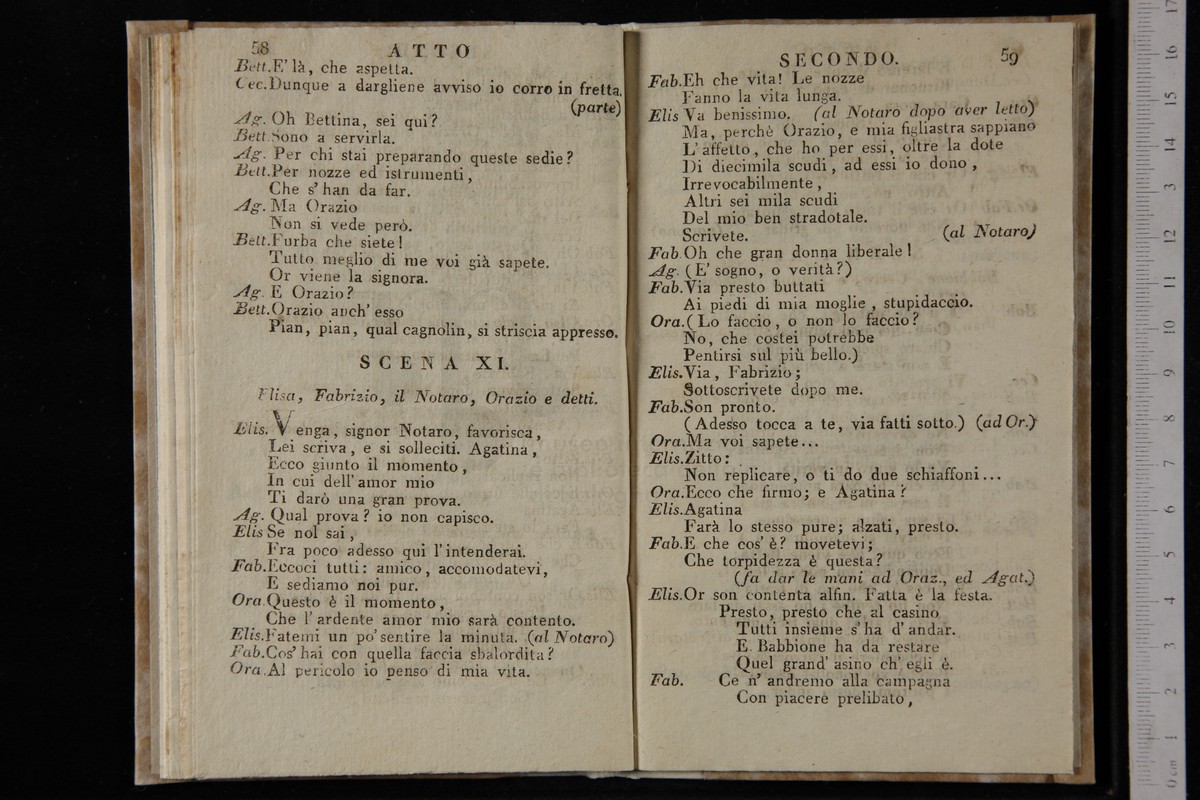 58
ATTO
Bett. E' là, che aspetta.
Cec. Dunque a dargliene avviso io corro in fretta.
(parte)
Ag. Oh Bettina, sei qui?
Bett. Sono a servirla.
Ag. Per chi stai preparando queste sedie?
Bett. Per nozze ed istrumenti,
Che s' han da far.
Ag. Ma Orazio
Non si vede però.
Bett. Furba che siete!
Tutto meglio di me voi già sapete.
Or viene la signora.
Ag. E Orazio?
Bett. Orazio anch' esso
Pian, pian, qual cagnolin, si striscia appresso.
SCENA XI.
Elisa, Fabrizio, il Notaro, Orazio e detti.
Elis. Venga, signor Notaro, favorisca,
Lei scriva, e si solleciti. Agatina,
Ecco giunto il momento,
In cui dell' amor mio
Ti darò una gran prova.
Ag. Qual prova? io non capisco.
Elis Se nol sai,
Fra poco adesso qui l' intenderai.
Fab. Eccoci tutti: amico, accomodatevi,
E sediamo noi pur.
Ora. Questo è il momento,
Che l' ardente amor mio sarà contento.
Elis. Fatemi un po' sentire la minuta. (al Notaro)
Fab. Cos' hai con quella faccia sbalordita?
Ora. Al pericolo io penso di mia vita.
SECONDO.
59
Fab. Eh che vita! Le nozze
Fanno la vita lunga.
Elis Va benissimo. (al Notaro dopo aver letto)
Ma, perchè Orazio, e mia figliastra sappiano
L' affetto, che ho per essi, oltre la dote
Di diecimila scudi, ad essi io dono,
Irrevocabilmente,
Altri sei mila scudi
Del mio ben stradotale.
Scrivete. (al Notaro)
Fab. Oh che gran donna liberale!
Ag. (E' sogno, o verità?)
Fab. Via presto buttati
Ai piedi di mia moglie, stupidaccio.
Ora. (Lo faccio, o non lo faccio?
No, che costei potrebbe
Pentirsi sul più bello.)
Elis. Via, Fabrizio;
Sottoscrivete dopo me.
Fab. Son pronto.
(Adesso tocca a te, via fatti sotto.) (ad Or.)
Ora. Ma voi sapete...
Elis. Zitto:
Non replicare, o ti do due schiaffoni...
Ora. Ecco che firmo; e Agatina?
Elis. Agatina
Farà lo stesso pure; alzati, presto.
Fab. E che cos' è? movetevi;
Che torpidezza è questa?
(fa dar le mani ad Oraz., ed Agat.)
Elis. Or son contenta alfin. Fatta è la festa.
Presto, presto che al casino
Tutti insieme s' ha d' andar.
E Babbione ha da restare
Quel grand' asino ch' egli è.
Fab. Ce n' andremo alla campagna
Con piacere prelibato,